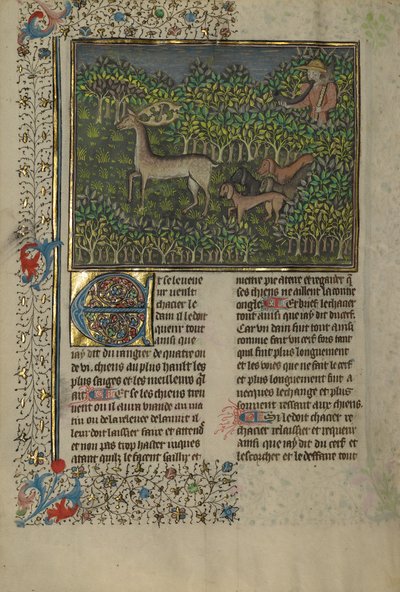 Et se le veneur
veult
chacier le
dain il le doit
querir tout
ainsi que
iay dit du rangier de quatre ou
de vi. chiens au plus hault les
plus saiges et les meilleurs ql
ait Et se les chiens
ou il aura viande au ma
tin ou de la releuee
leur doit laissier faire et attend
et non pas trop haster iucques
a tant quilz le facent saillir et
mettre pie a terre et regarder q
ses chiens ne aillent la contre
ongle Et doit le chacier
tout ainsi que iay dit du cerf
Car vn dain fuit tout ainsi
comme fait vn cerf fors tant
quil fuit plus longuement
et les voies que ne fait le cerf
et plus longuement fuit a
uecques le change et plus
souuent ressaut aux chiens
Si le doit chacier re
chacier relaissier et requerir
ainsi que iay dit du cerf et
lescorcher et le deffaire tout